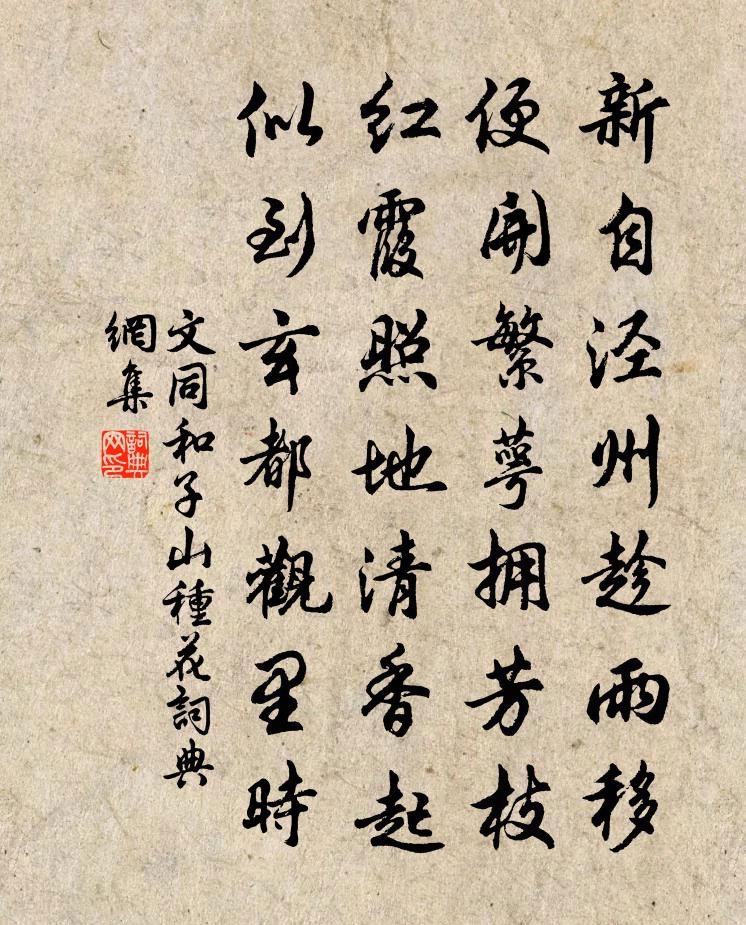 新自泾州趁雨移
便開繁萼拥芳枝
红霞照地清香起
似到玄都觀里時
文同和子山種花詞典
網集
詞典
网印